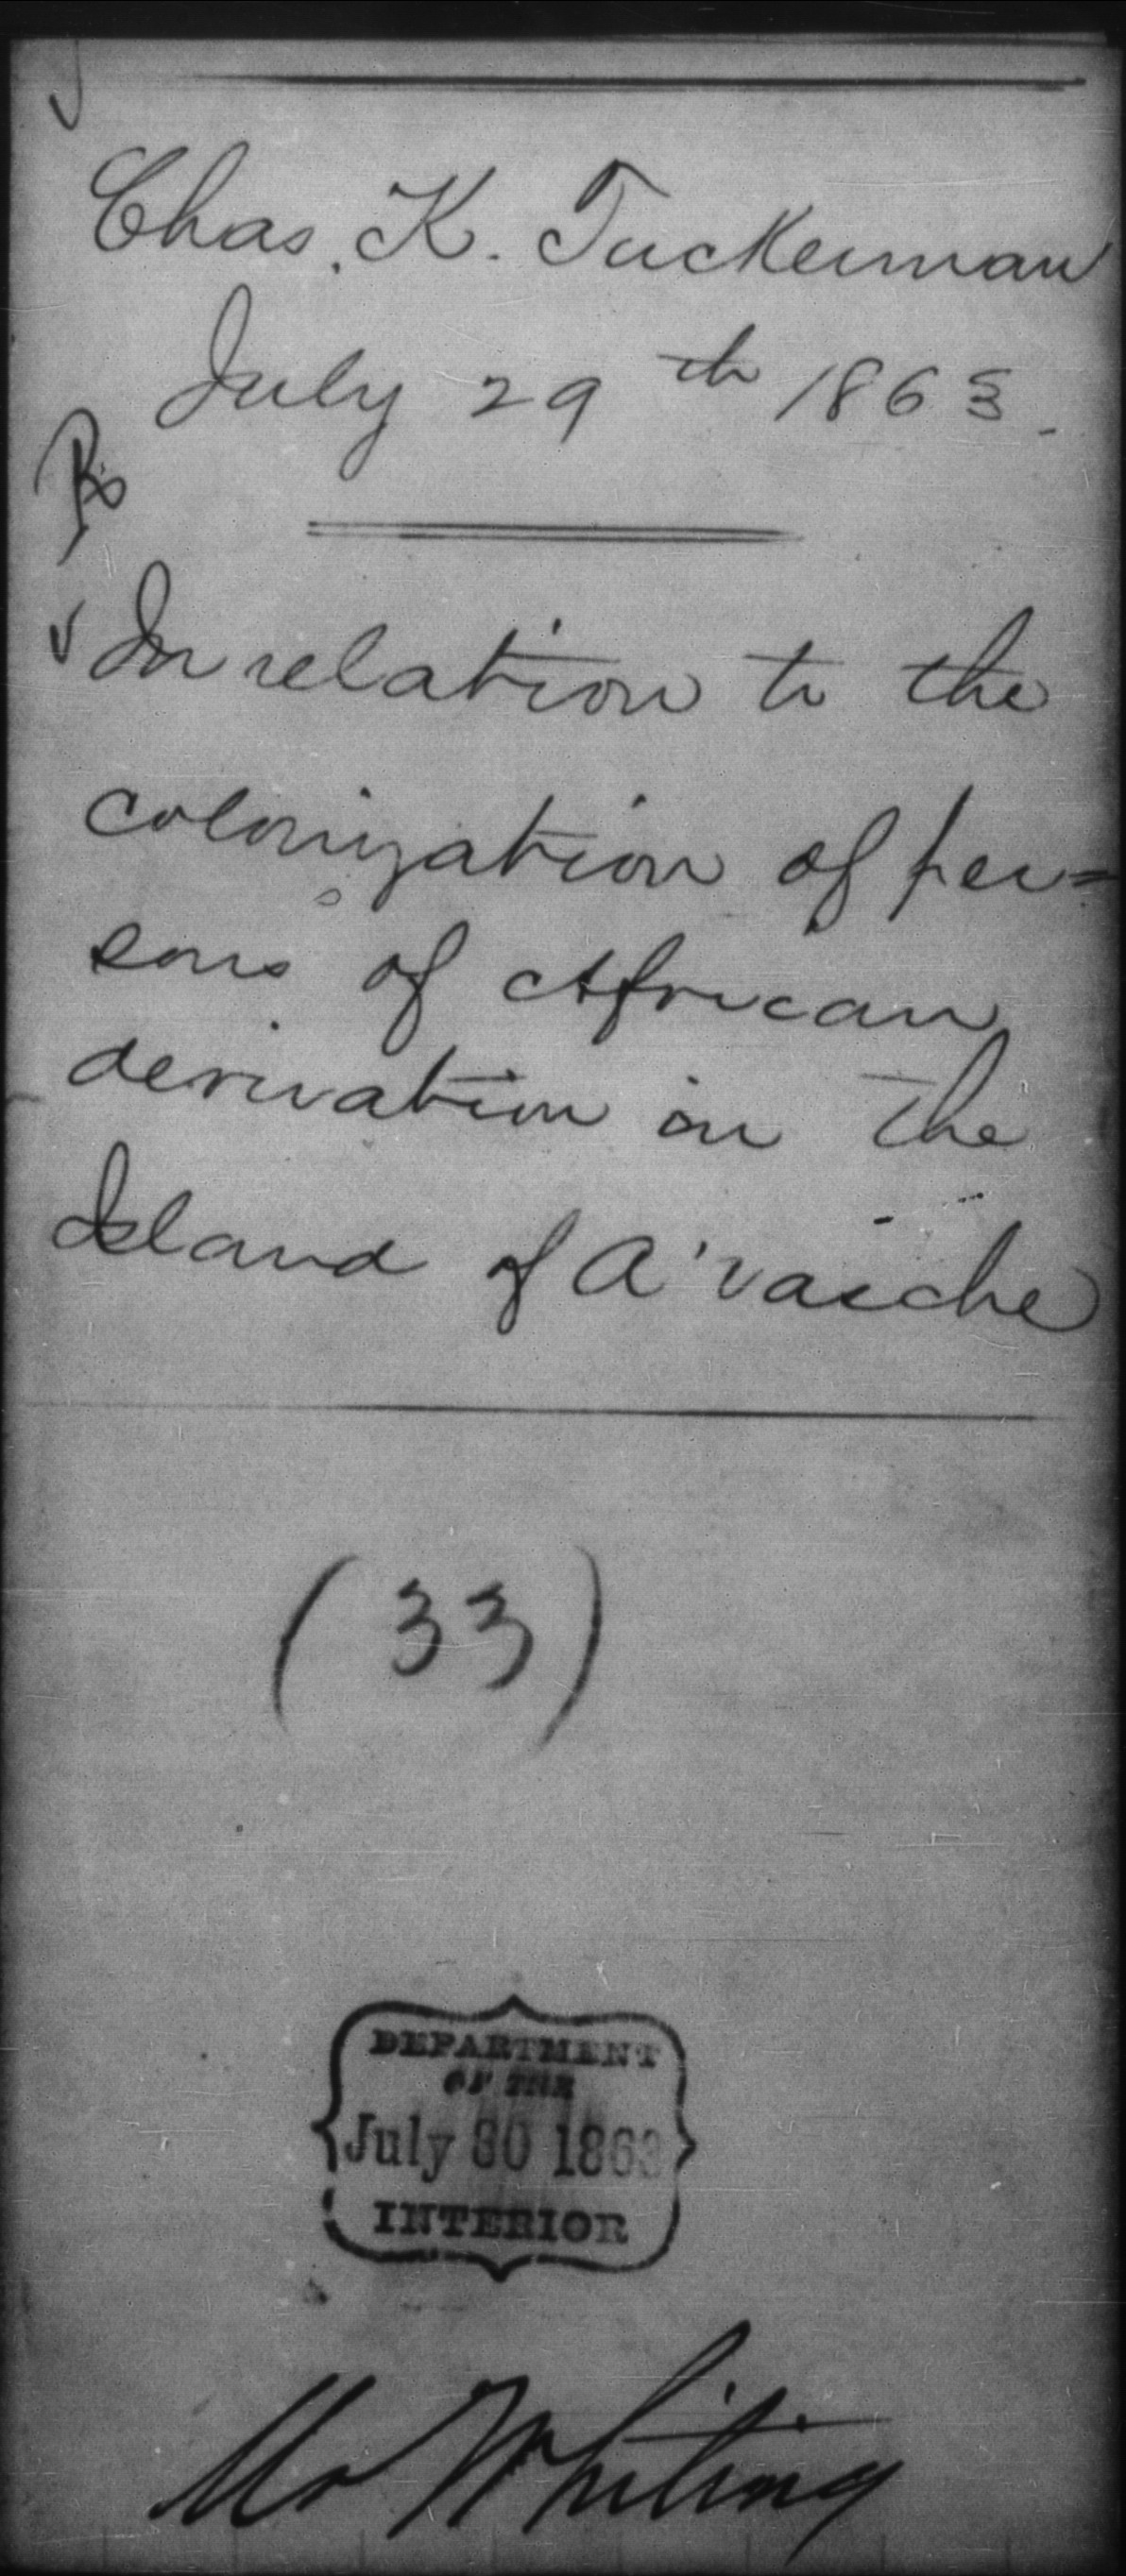 Chas. K. Tuckerman
July 29th 1863.
In relation to the
colonization of per=
sons of African
derivation on the
Island of A'vache
(33)
DEPARTMENT
OF THE
July 30 1863
INTERIOR
Mr Whiting